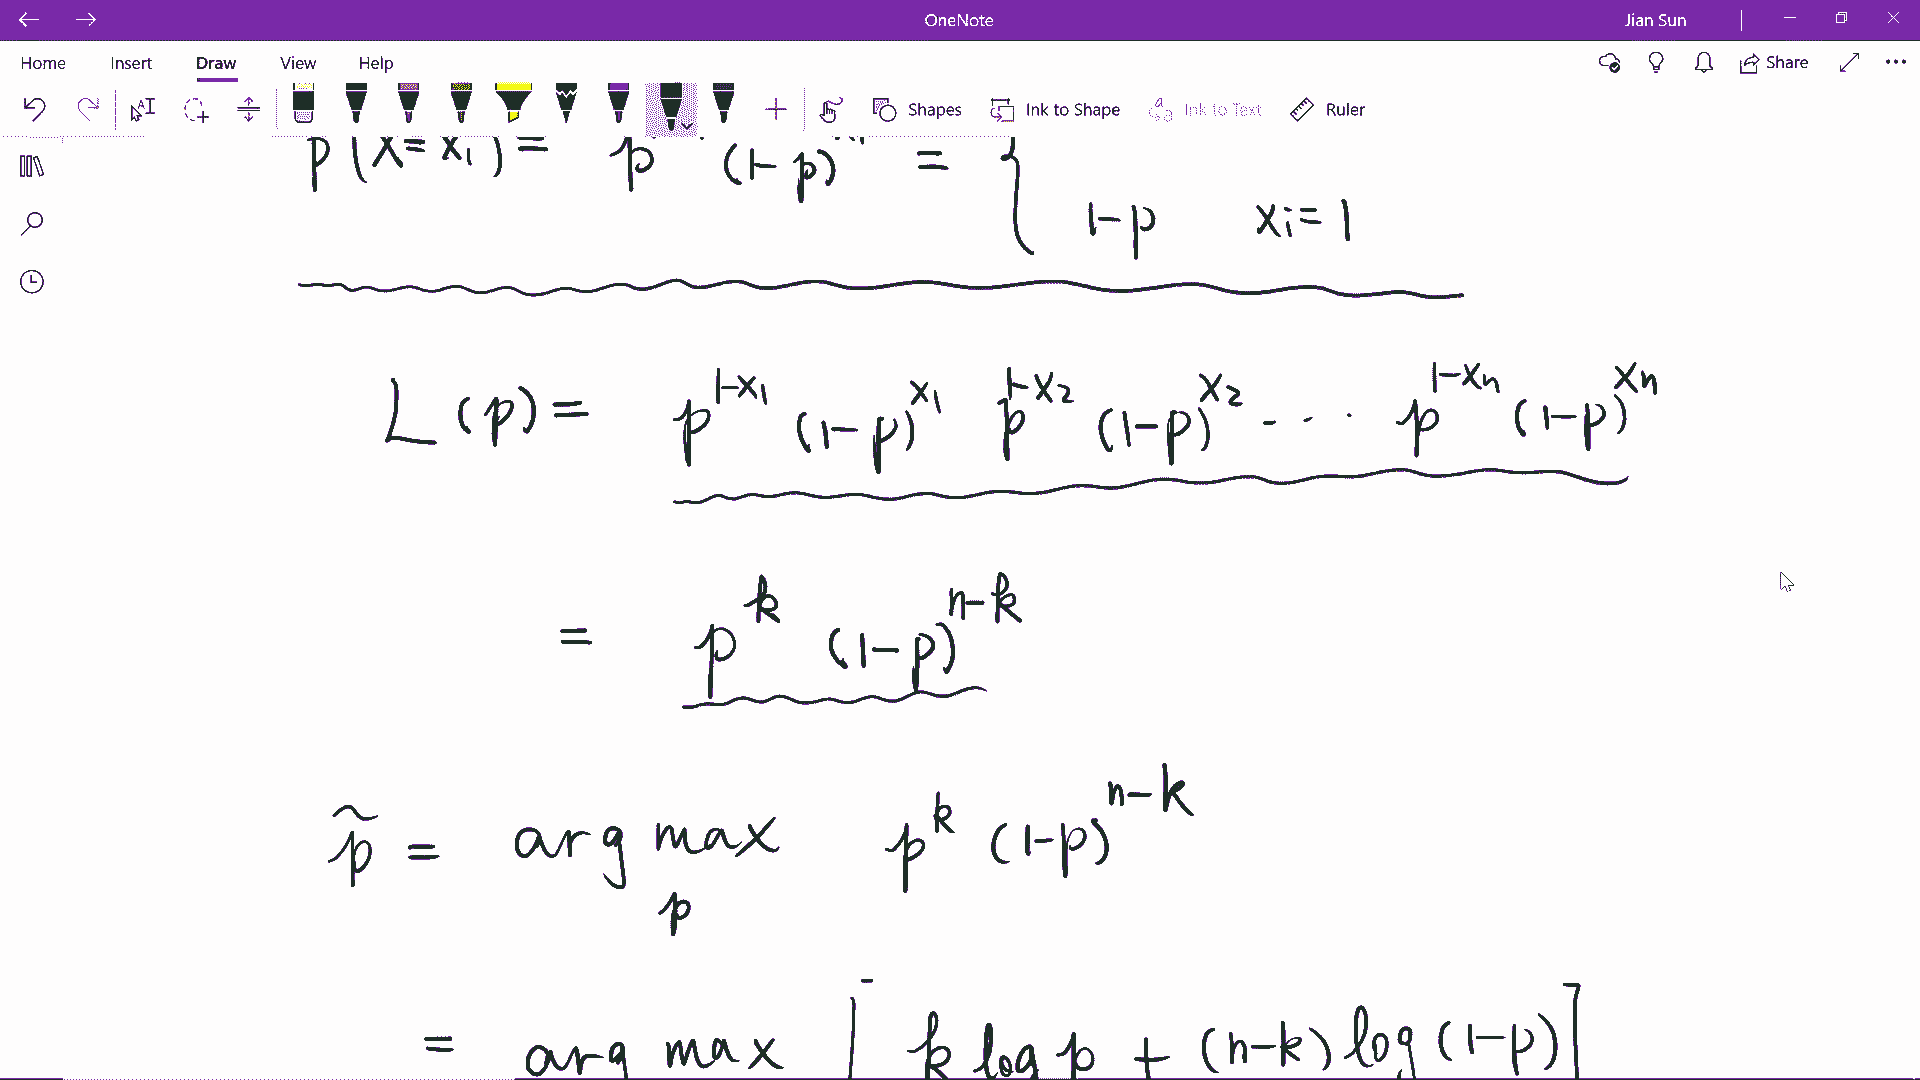 OneNote
Jian Sun
Home Insert Draw View Help
Share
Shapes Ink to Shape Ink to Text Ruler
P(X=x₁)= p (1-p) = {
1-p xi=1
L(p)= p^{1-x₁} (1-p)^{x₁} p^{1-x₂} (1-p)^{x₂} ---- p^{1-xₙ} (1-p)^{xₙ}
= p^k (1-p)^{n-k}
p̃ = arg max p^k (1-p)^{n-k}
p
= arg max [ k log p + (n-k) log (1-p) ]